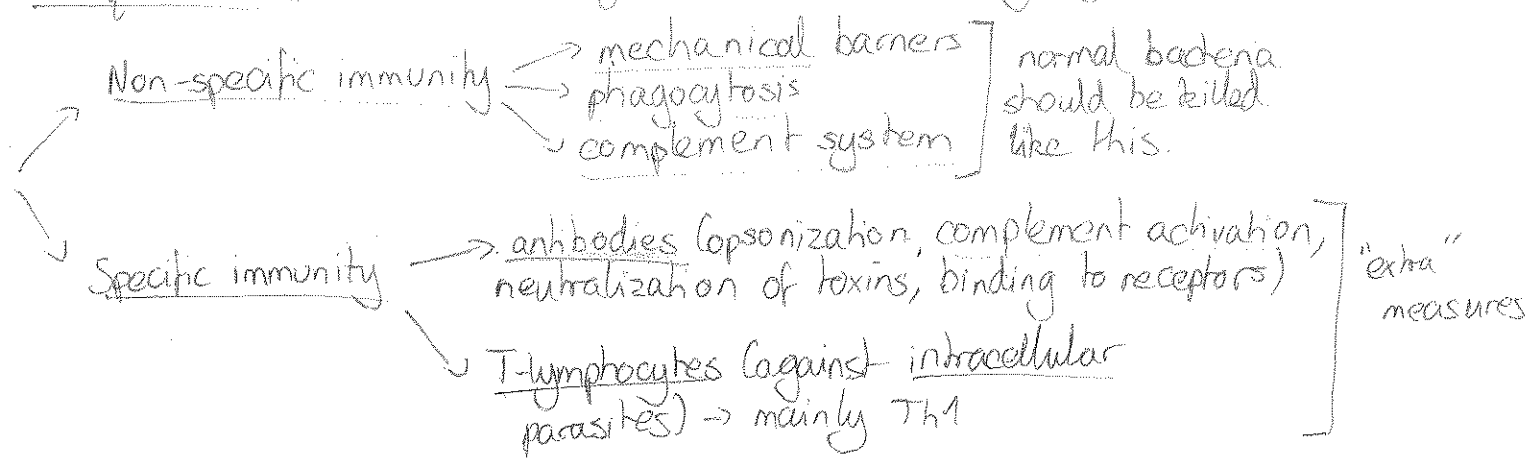 mechanical barriers
Non-specific immunity phagocytosis
complement system
normal bacteria
should be killed
like this.
Specific immunity
antibodies (opsonization, complement activation,
neutralization of toxins, binding to receptors)
T-lymphocytes (against intracellular
parasites) → mainly Th1
"extra"
measures